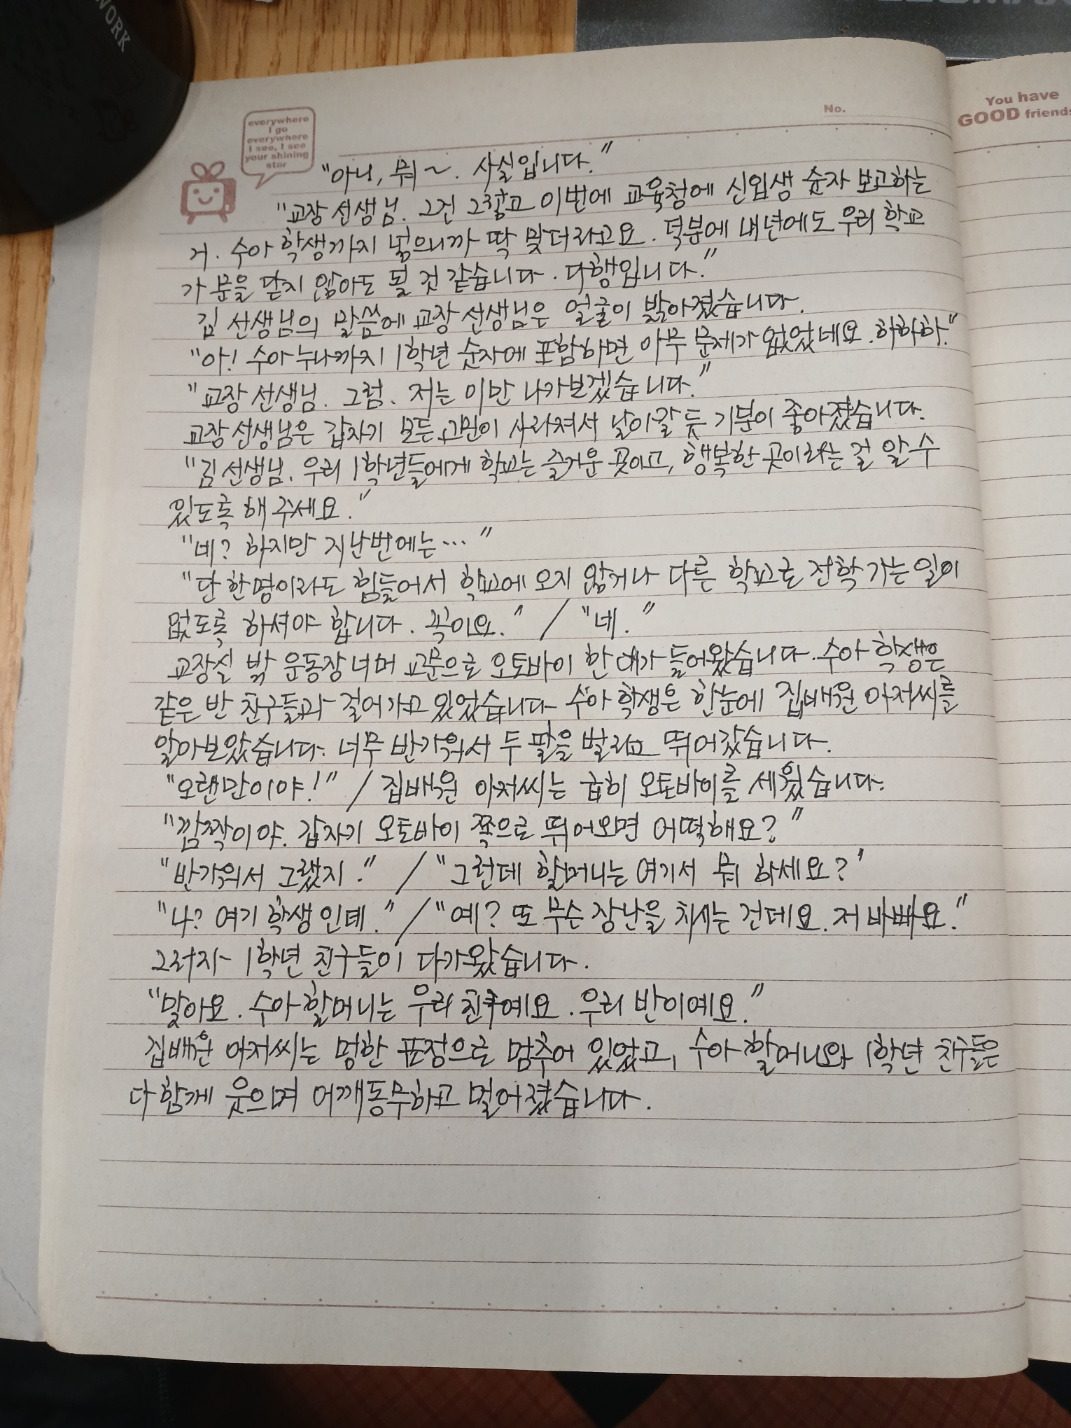 WORK
No.
You have
GOOD friends
everywhere
I go
everywhere
I see, I see
your shining
star
"아니, 뭐~. 사실입니다."
"교장 선생님. 그건 그렇고 이번에 교육청에 신입생 숫자 보고하는
거. 수아 학생까지 넣으니까 딱 맞더라고요. 덕분에 내년에도 우리 학교
가 문을 닫지 않아도 될 것 같습니다. 다행입니다."
김 선생님의 말씀에 교장 선생님은 얼굴이 밝아졌습니다.
"아! 수아 누나까지 1학년 숫자에 포함하면 아무 문제가 없었네요. 하하하."
"교장 선생님. 그럼. 저는 이만 나가보겠습니다."
교장 선생님은 갑자기 모든 고민이 사라져서 날아갈 듯 기분이 좋아졌습니다.
"김 선생님. 우리 1학년들에게 학교는 즐거운 곳이고, 행복한 곳이라는 걸 알 수
있도록 해 주세요."
"네? 하지만 지난번에는…"
"단 한명이라도 힘들어서 학교에 오지 않거나 다른 학교로 전학 가는 일이
없도록 하셔야 합니다. 꼭이요." / "네."
교장실 밖 운동장 너머 교문으로 오토바이 한 대가 들어왔습니다. 수아 학생은
같은 반 친구들과 걸어가고 있었습니다. 수아 학생은 한눈에 집배원 아저씨를
알아보았습니다. 너무 반가워서 두 팔을 벌리고 뛰어갔습니다.
"오랜만이야!" / 집배원 아저씨는 급히 오토바이를 세웠습니다.
"깜짝이야. 갑자기 오토바이 쪽으로 뛰어오면 어떡해요?"
"반가워서 그랬지." / "그런데 할머니는 여기서 뭐 하세요?'
"나? 여기 학생인데." / "예? 또 무슨 장난을 치시는 건데요. 저 바빠요."
그러자 1학년 친구들이 다가왔습니다.
"맞아요. 수아 할머니는 우리 친구예요. 우리 반이에요."
집배원 아저씨는 멍한 표정으로 멈추어 있었고, 수아 할머니와 1학년 친구들은
다 함께 웃으며 어깨동무하고 멀어졌습니다.